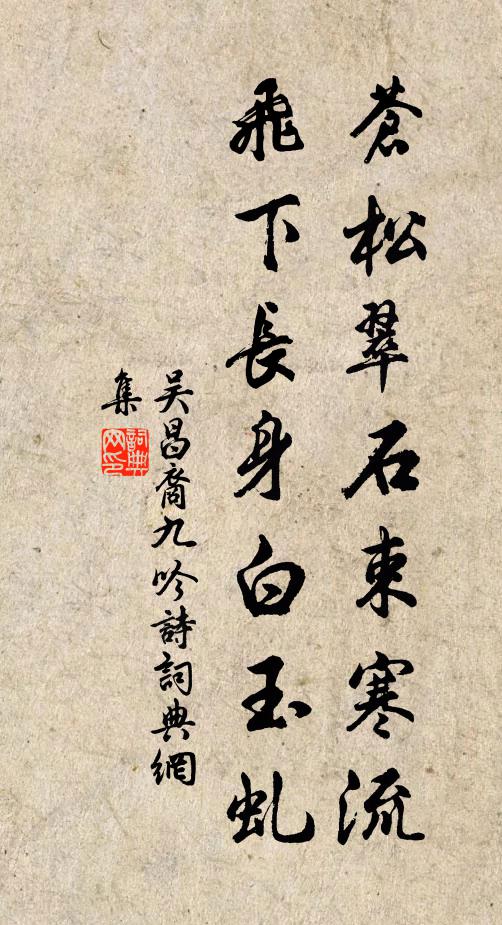 蒼松翠石束寒流
飛下長身白玉虬
吴昌裔九吟詩詞典網
集
詞典網印